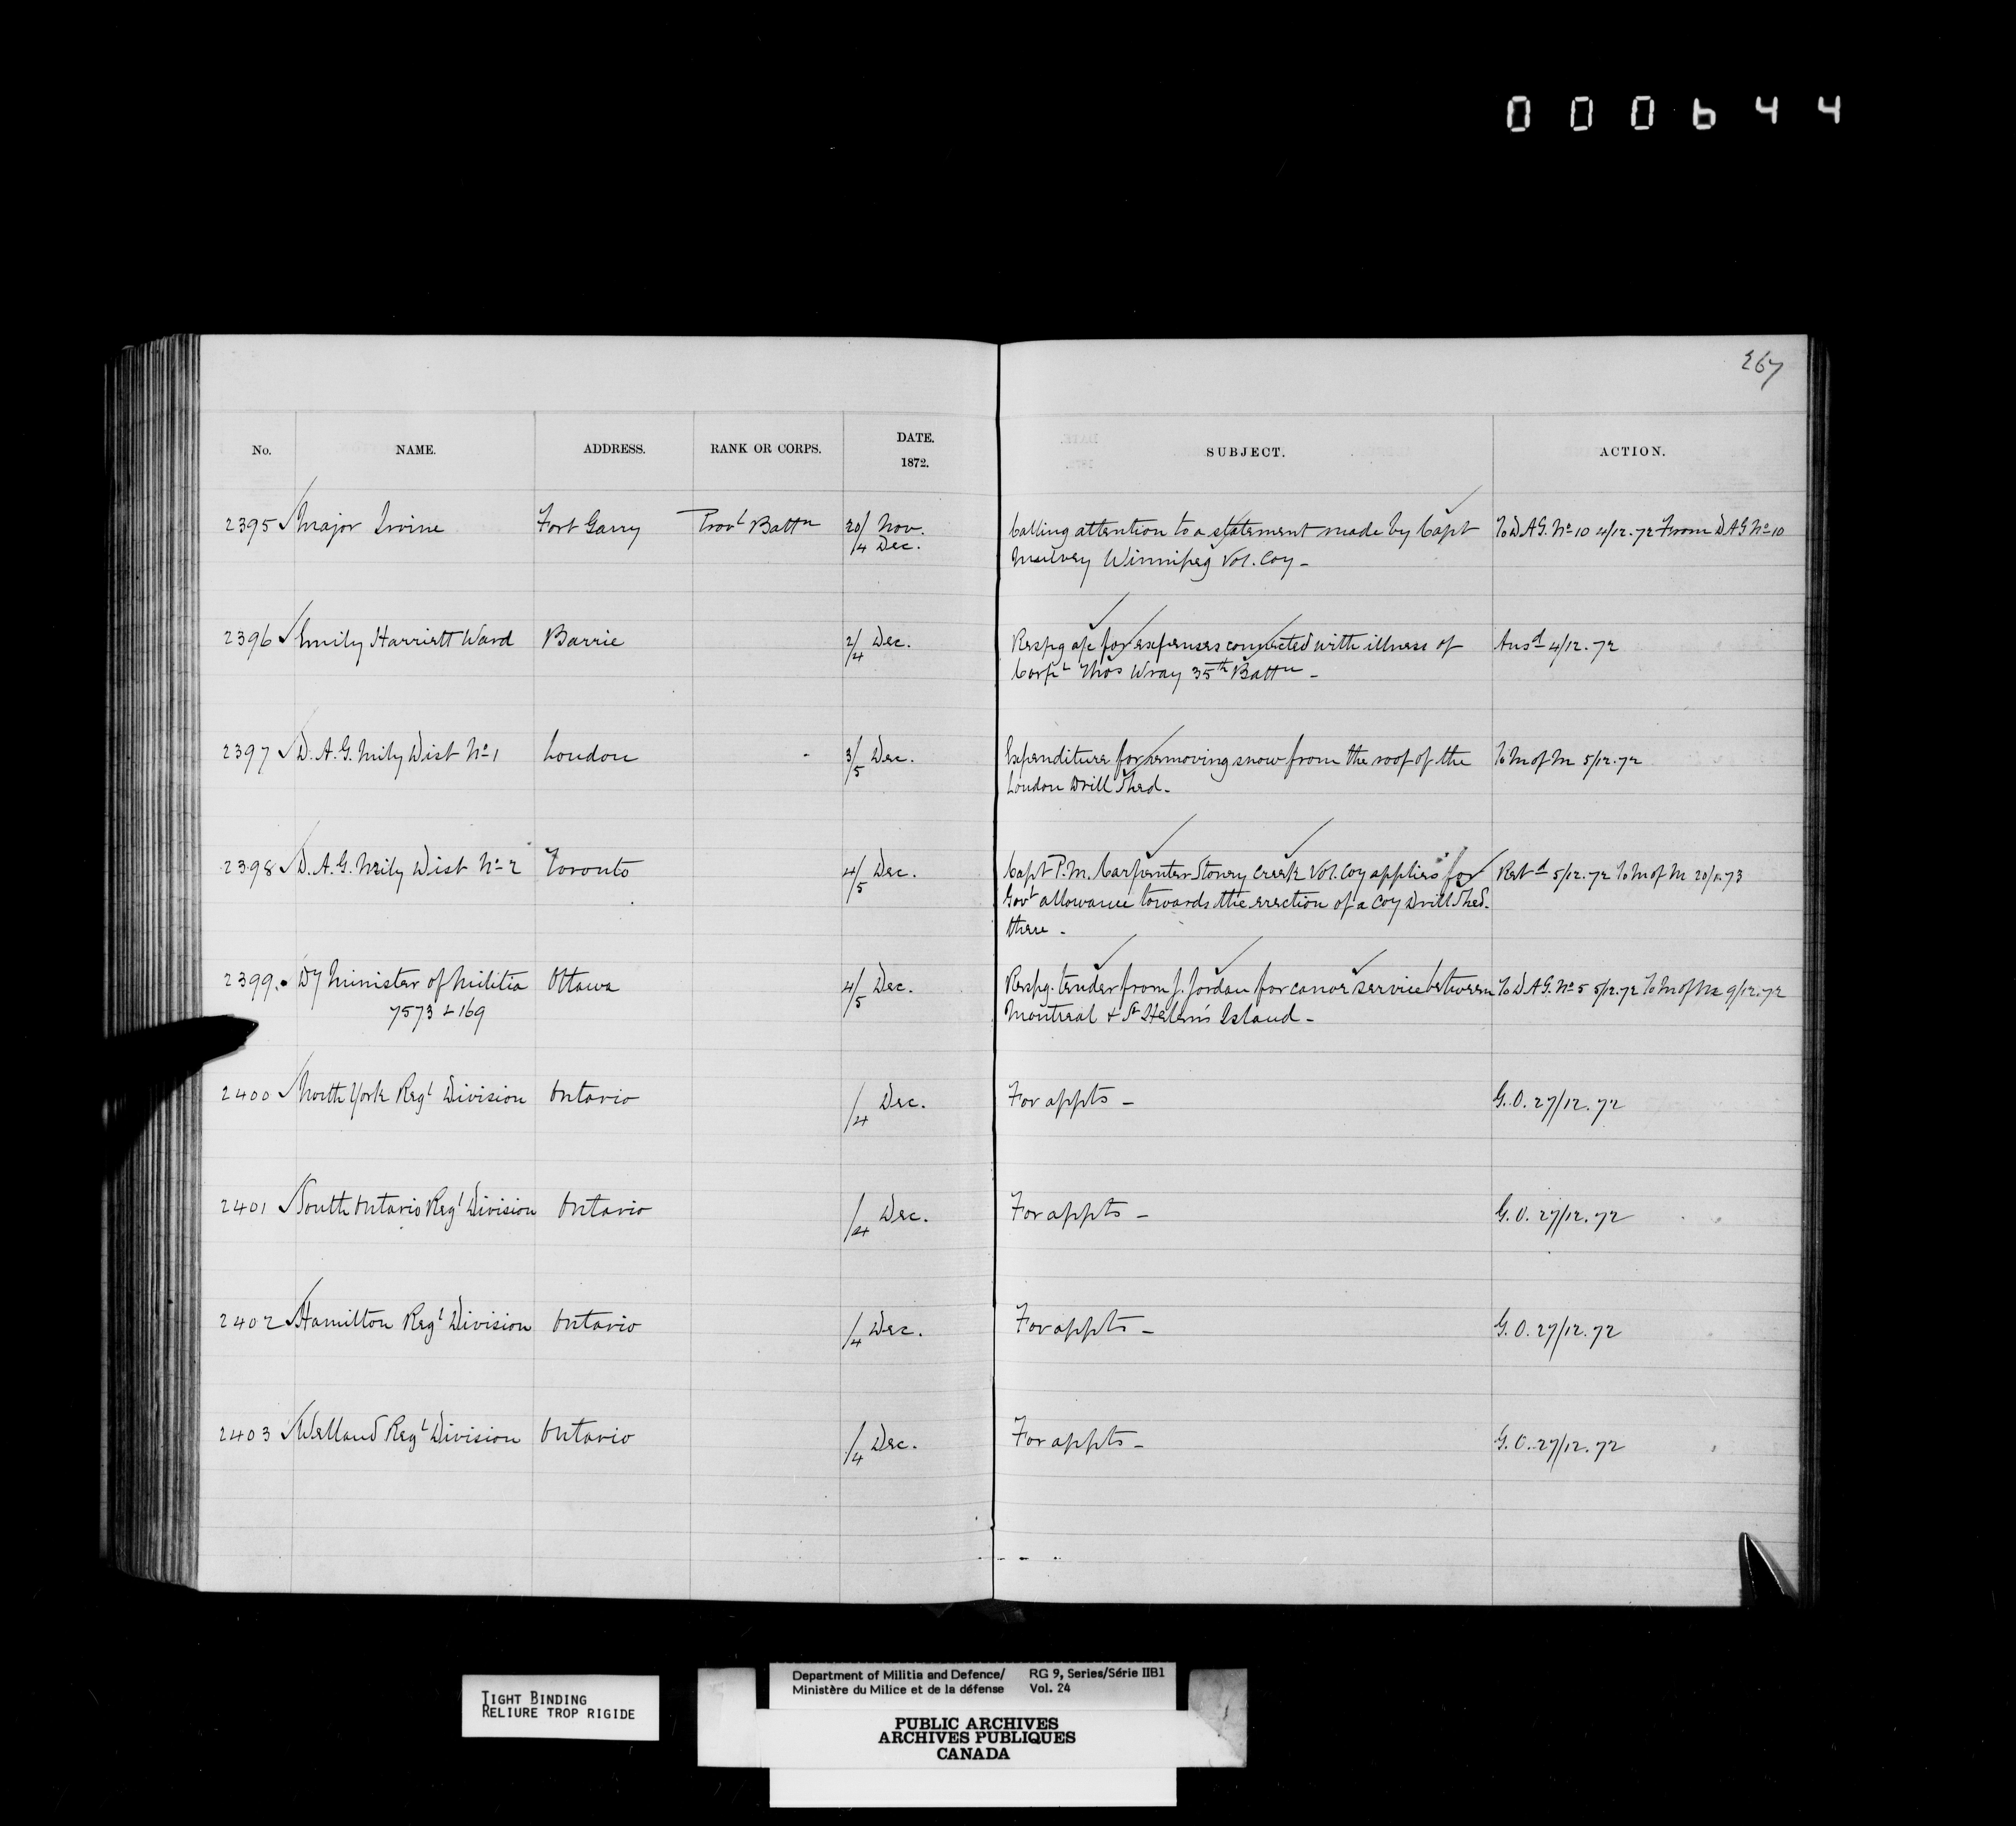 000644
267
No. NAME. ADDRESS. RANK OR CORPS. DATE. 1872. SUBJECT. ACTION.
2395 Major Irvine Fort Garry Provl Battn 20/ Nov. /4 Dec. Calling attention to a statement made by Capt To D A G. No 10 4/12.72 From D A G No 10
Mulvey Winnipeg Vol. Coy -
2396 Emily Harriett Ward Barrie 2/4 Dec. Respg a/c for expenses connected with illness of Ansd 4/12.72
Corpl Thos Wray 35th Battn -
2397 D. A. G. Mily Dist No 1 London 3/5 Dec. Expenditure for removing snow from the roof of the To M of M 5/12.72
London Drill Shed -
2398 D. A. G. Mily Dist No 2 Toronto 4/5 Dec. Capt P. M. Carpenter Stoney Creek Vol. Coy applies for Retd 5/12.72 To M of M 20/1.73
Govt allowance towards the erection of a Coy Drill Shed.
there -
2399. Dy Minister of Militia Ottawa 4/5 Dec. Respg. tender from J. Jordan for canoe service between To D A G. No 5 5/12.72 To M of M 9/12.72
7573 & 169 Montreal & St Helen's Island -
2400 North York Regl Division Ontario /4 Dec. For appts - G. O. 27/12.72
2401 South Ontario Regl Division Ontario /4 Dec. For appts - G. O. 27/12.72
2402 Hamilton Regl Division Ontario /4 Dec. For appts - G. O. 27/12.72
2403 Welland Regl Division Ontario /4 Dec. For appts - G. O. 27/12.72
TIGHT BINDING
RELIURE TROP RIGIDE
Department of Militia and Defence/ RG 9, Series/Série IIB1
Ministère du Milice et de la défense Vol. 24
PUBLIC ARCHIVES
ARCHIVES PUBLIQUES
CANADA